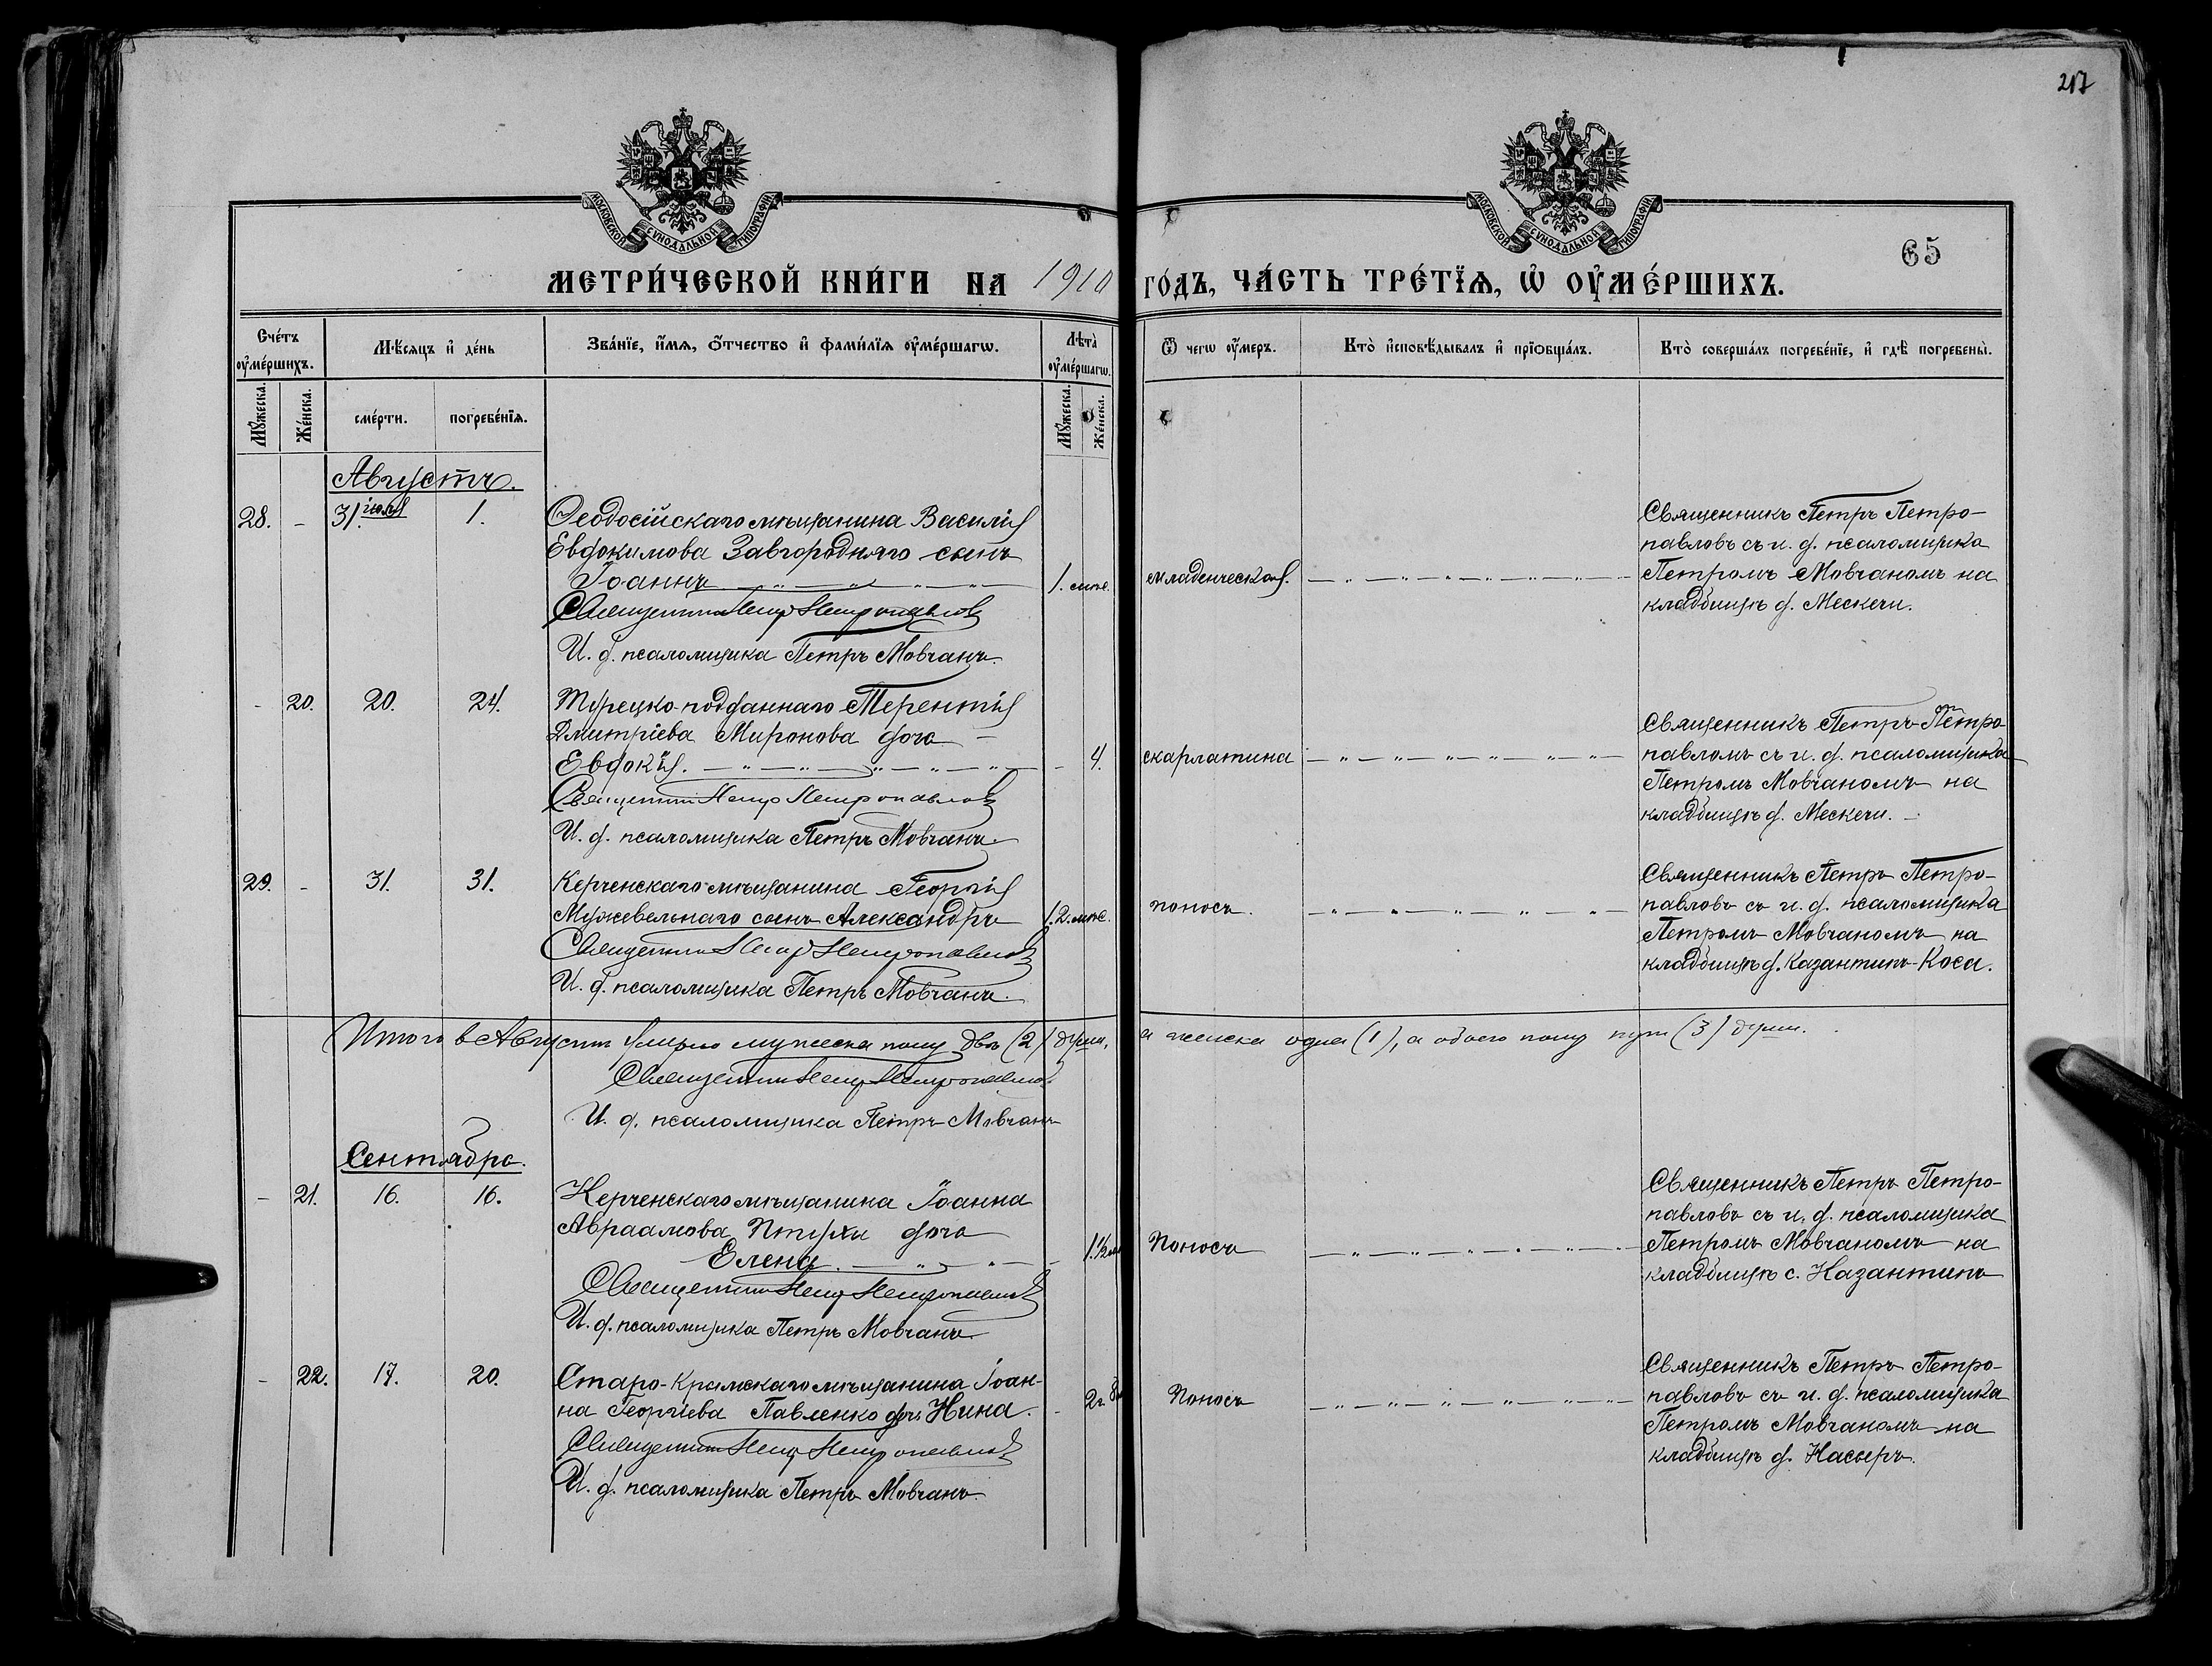 217
МОСКОВСКОЙ СУНОДАЛЬНОЙ ТИПОГРАФІИ
МОСКОВСКОЙ СУНОДАЛЬНОЙ ТИПОГРАФІИ
65
МЕТРИ́ЧЕСКОЙ КНИ́ГИ НА 1910 ГО́ДЪ, ЧА́СТЬ ТРЕ́ТЇѦ, Ѡ҆ ОУ҆МЕ́РШИХЪ.
Сче́тъ оу҆ме́ршихъ.
Мѣ́сяцъ и҆ де́нь
Зва́нїе, и҆́мѧ, ѻ҆́тчество и҆ фами́лїѧ оу҆ме́ршагѡ.
Лѣ́та оу҆ме́ршагѡ.
Ѿ чегѡ̀ оу҆́меръ.
Кто̀ и҆сповѣ́дывалъ и҆ прїѡбща́лъ.
Кто̀ соверша́лъ погребе́нїе, и҆ гдѣ̀ погребены̀.
Мꙋ́жеска.
Же́нска.
сме́рти.
погребе́нїѧ.
Мꙋ́жеска.
Же́нска.
Августъ.
28. - 31. іюля 1.
Ѳеодосійскаго мѣщанина Василія
Евдокимова Завгородняго сынъ
Іоаннъ
1. мѣс.
младенческая.
Священникъ Петръ Петропавловъ
И. д. псаломщика Петръ Мовчанъ.
Священникъ Петръ Петро-
павловъ съ и. д. псаломщика
Петромъ Мовчаномъ на
кладбищѣ д. Мескечи.
- 20. 20. 24.
Турецко-подданнаго Терентія
Дмитріева Миронова дочь -
Евдокія.
- 4.
скарлатина
Священникъ Петръ Петропавловъ
И. д. псаломщика Петръ Мовчанъ.
Священникъ Петръ Петро-
павломъ съ и. д. псаломщика
Петромъ Мовчаномъ на
кладбищѣ д. Мескечи. -
29. - 31. 31.
Керченскаго мѣщанина Георгія
Мужевельнаго сынъ Александръ
2. мѣс.
поносъ.
Священникъ Петръ Петропавловъ
И. д. псаломщика Петръ Мовчанъ.
Священникъ Петръ Петро-
павловъ съ и. д. псаломщика
Петромъ Мовчаномъ на
кладбищѣ д. Казантипъ-Коса.
Итого въ Августѣ умерло мужеска полу двѣ (2) души, и женска одна (1), а обоего полу три (3) души.
Священникъ Петръ Петропавловъ
И. д. псаломщика Петръ Мовчанъ
Сентябрь.
- 21. 16. 16.
Керченскаго мѣщанина Іоанна
Авраамова Птухи дочь
Елена.
1 1/2
Поносъ
Священникъ Петръ Петропавловъ
И. д. псаломщика Петръ Мовчанъ
Священникъ Петръ Петро-
павловъ съ и. д. псаломщика
Петромъ Мовчаномъ на
кладбищѣ с. Казантипъ
- 22. 17. 20.
Старо-Крымскаго мѣщанина Іоан-
на Георгіева Павленко дочь Нина.
- 2 г. 8
Поносъ
Священникъ Петръ Петропавловъ
И. д. псаломщика Петръ Мовчанъ.
Священникъ Петръ Петро-
павловъ съ и. д. псаломщика
Петромъ Мовчаномъ на
кладбищѣ д. Насыръ.